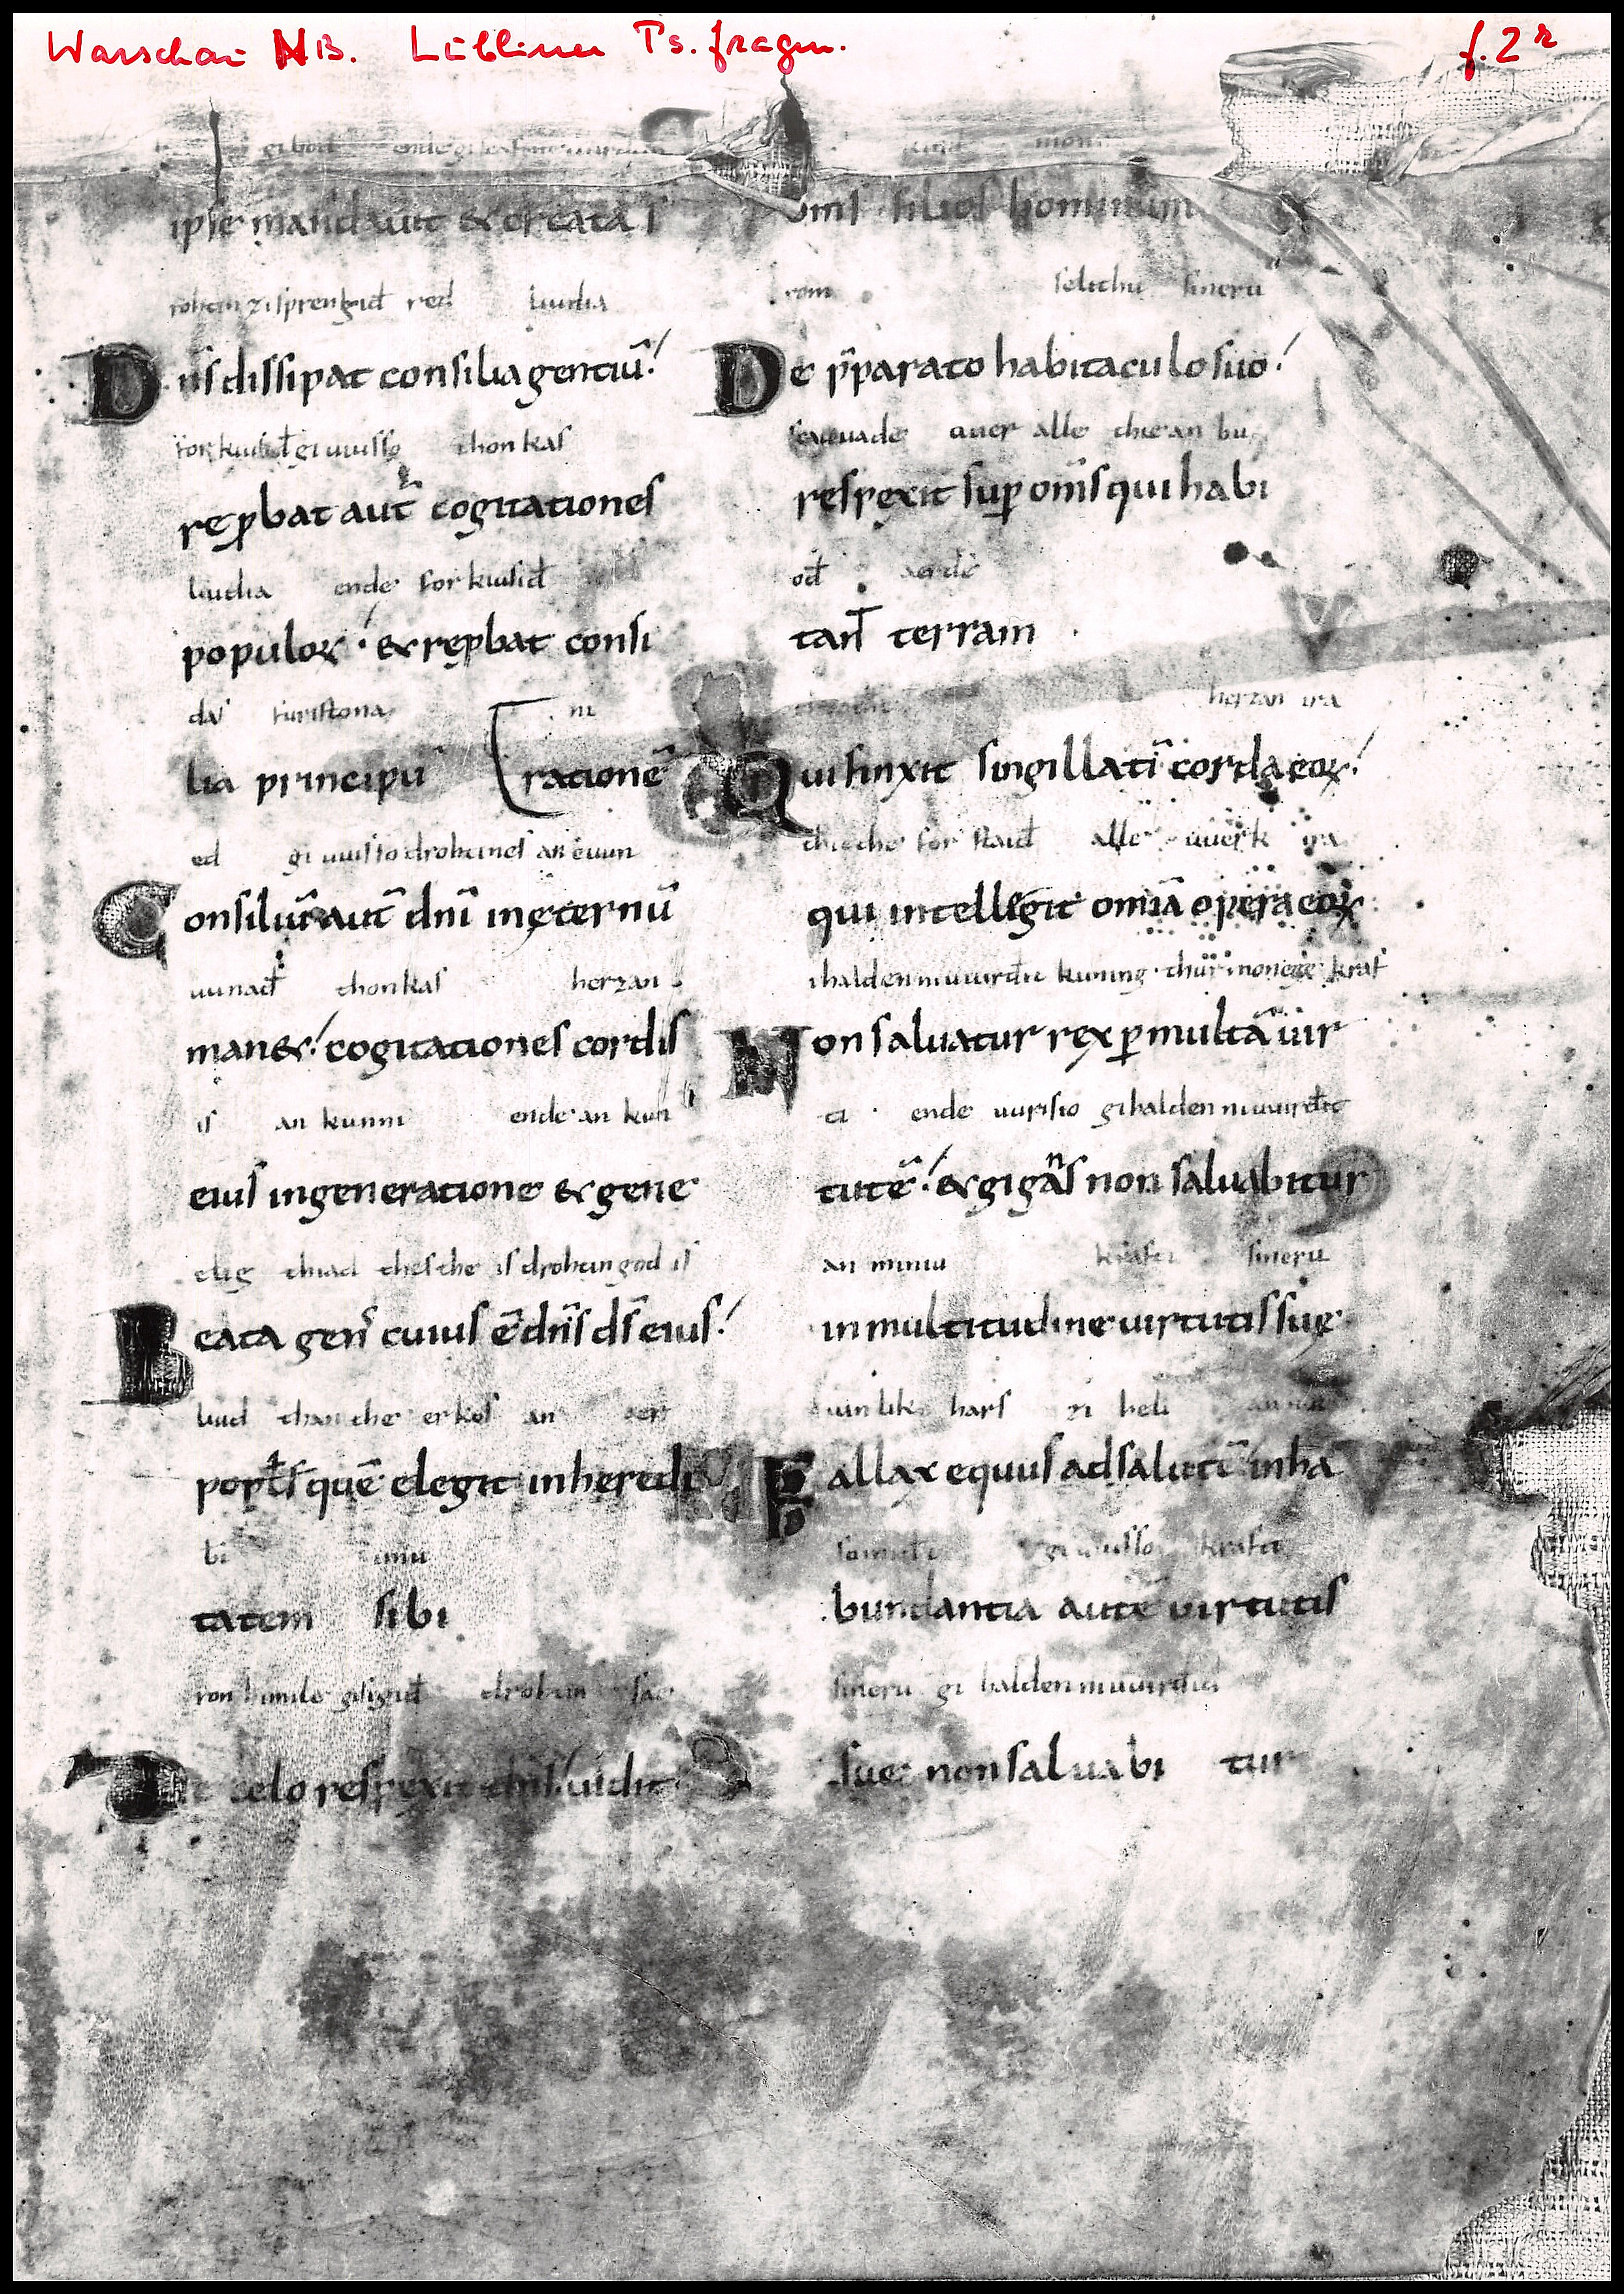 Warschau NB. Lubliner Ps. fragm. f. 2r
gibod
ipse mandauit & creata s
rohtin zisprengid red liudia
Dn̄s dissipat consilia gentiū
forkiusid giuuisso thonkas
rep̱bat aut̄ cogitationes
liudia ende forkiusid
populoꝝ & rep̱bat consi
das furistona ni
lia principū rationē
ed giuuisso drohtines an euun
Consiliū aut̄ dn̄i in ęternū
uunad thonkas herzan
man& cogitationes cordis
is an kunni ende an kun
eius in generatione & gene
elig thiad thes the is drohtin god is
Beata gens cuius ē dn̄s ds̄ eius
liud than the erkos an
popl̄s quē elegit in heredi
bi imu
tatem sibi
fon himile gisigid drohtin
De celo respexit dn̄s uidit
om̄s filios hominum
fom selithu sineru
De p̄parato habitaculo suo
scauuade auer alle thie an bu
respexit sup̱ om̄s qui habi
od erde
tan̄t terram
herzan ira
Qui finxit singillatī corda eoꝝ
thie the forstaid alle uuerk ira
qui intellegit om̄ia opera eoꝝ
ihalden ni uuirdit kuning thur kraf
Non saluatur rex p̱ multā uir
ti ende uurisio gihalden ni uuirdit
tutē & gigans non saluabitur
an minu krafti sineru
in multitudine uirtutis suę
luinlik hars zi heli
Fallax equus ad salutē in ha
giuuisso krafti
bundantia autē uirtutis
sineru gihalden ni uuirdid
suę non saluabi tur